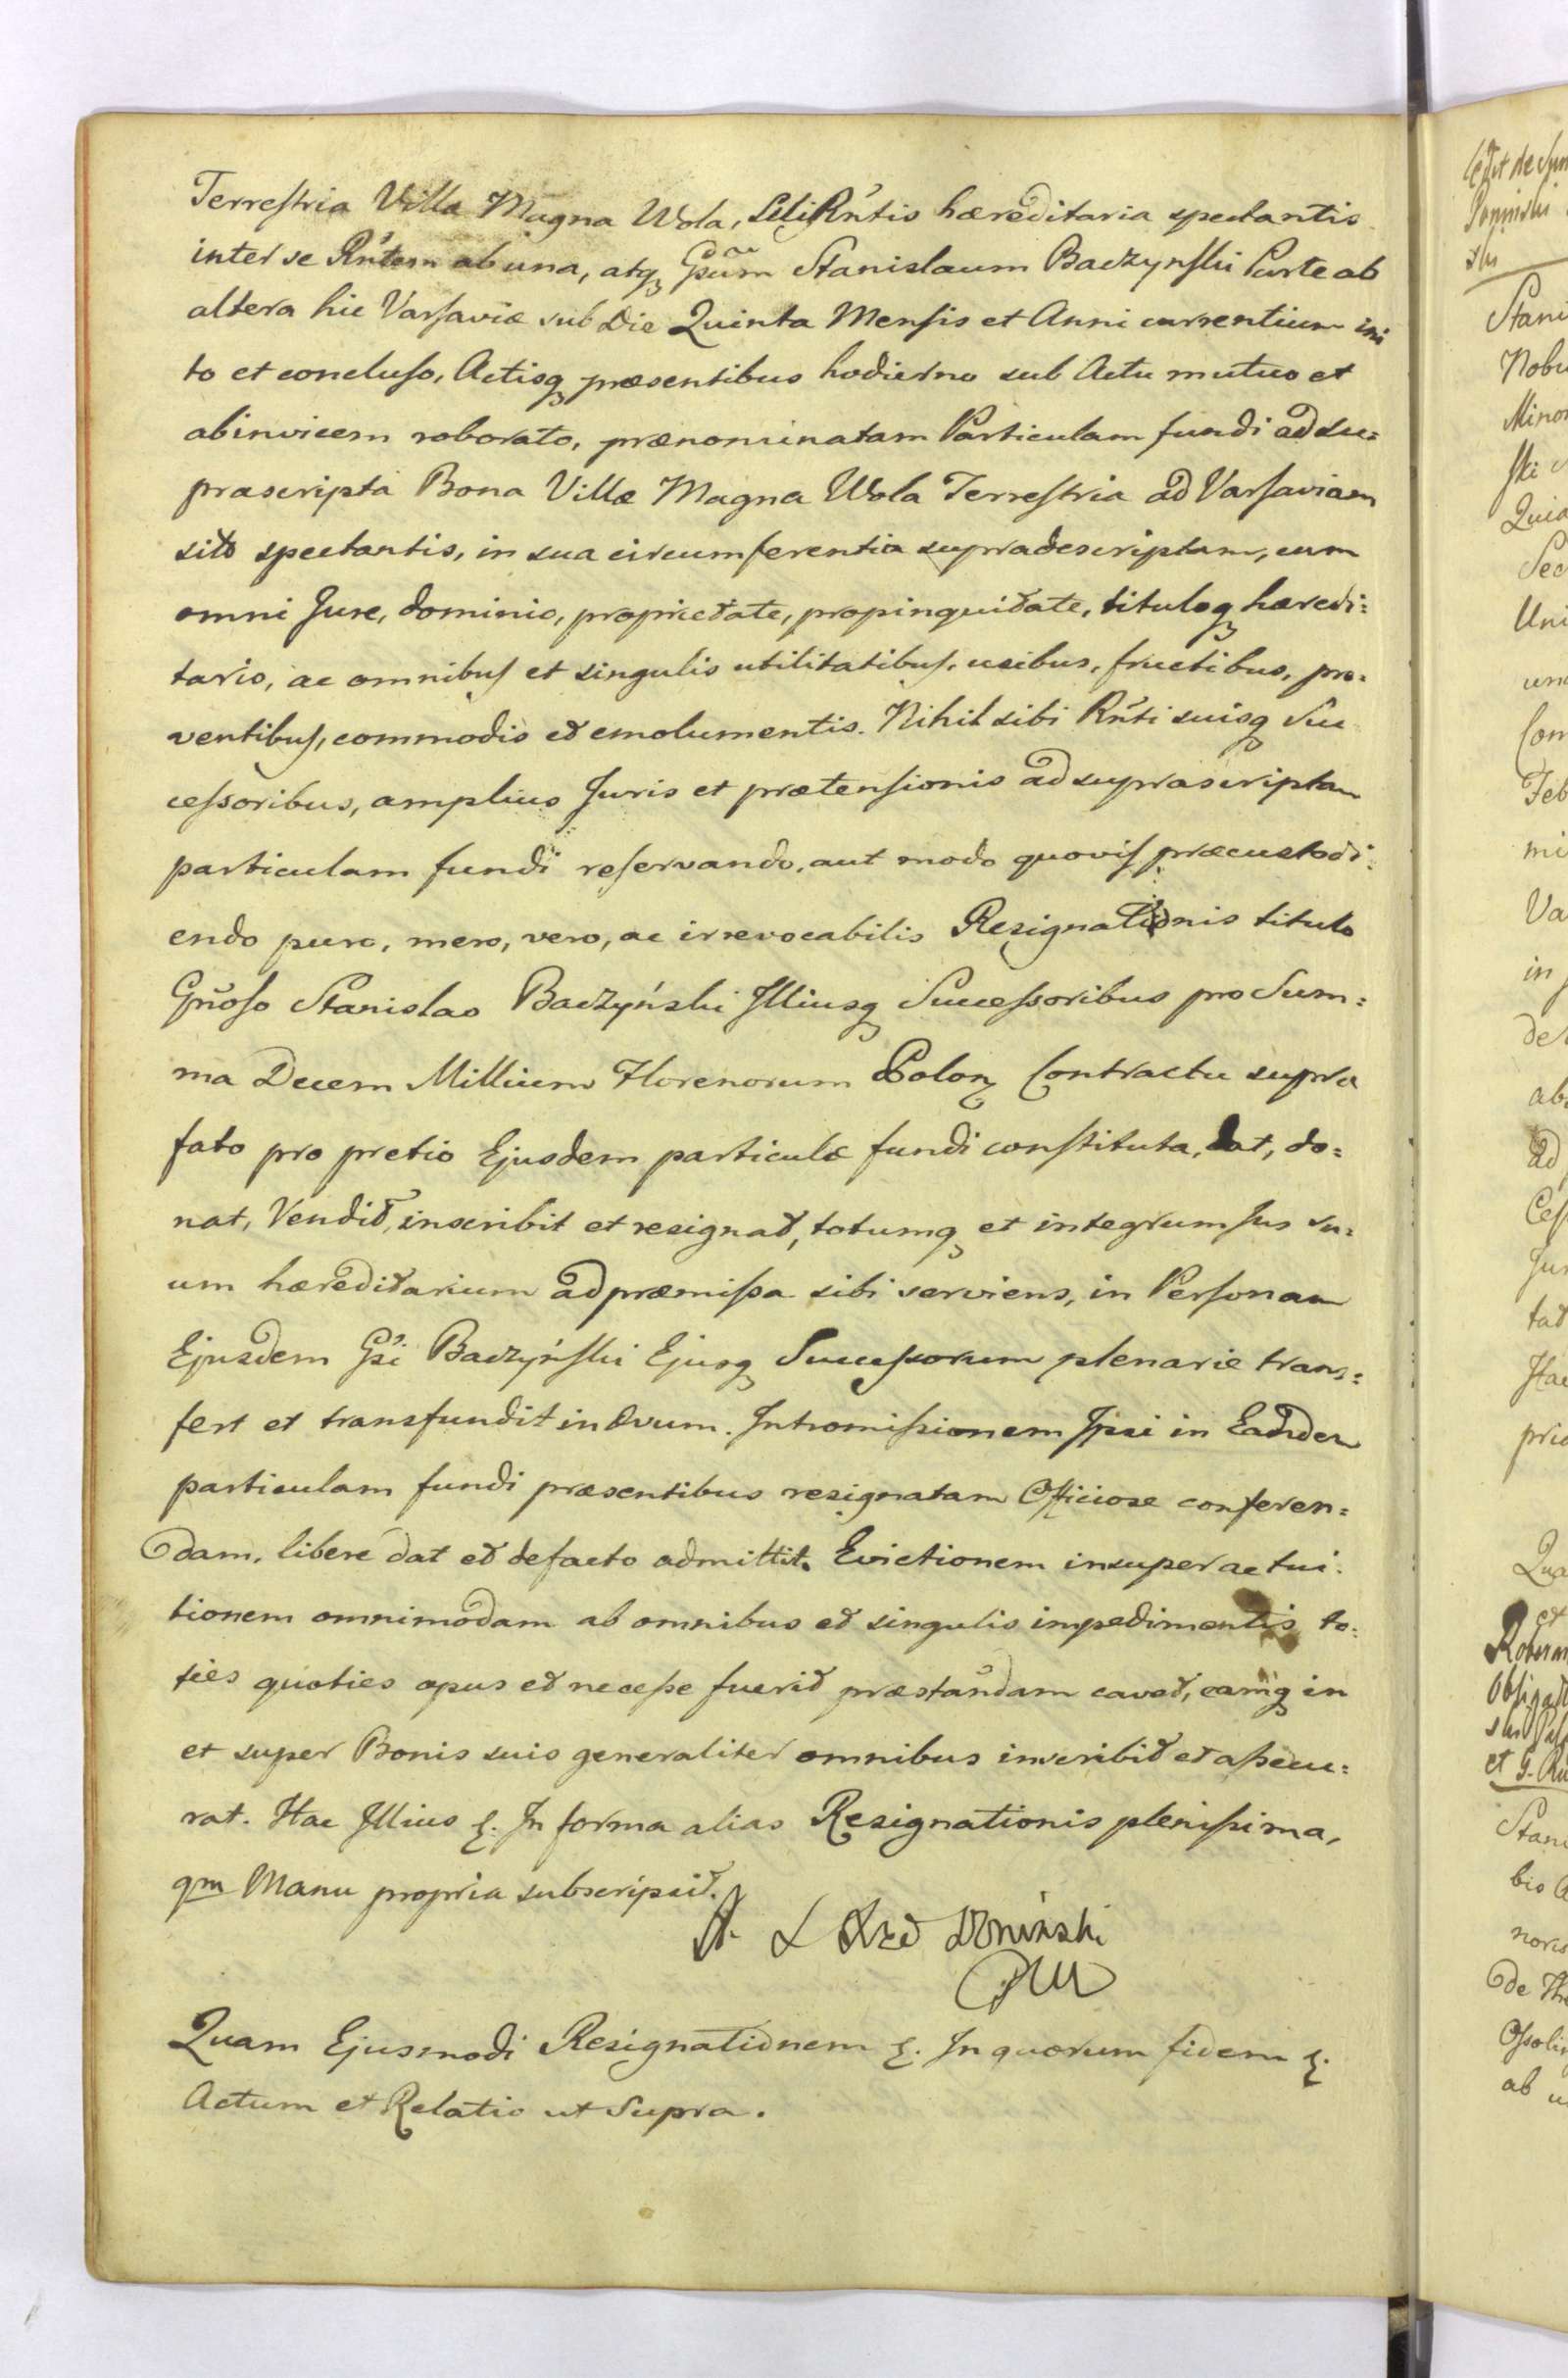 Terrestria Villa Magna Wola, Rñtis hæreditaria spectantis
inter se Rñtem ab una, atq Gsũm Stanislaum Baczynski Parte ab
altera hic Varsaviæ sub Die Quinta Mensis et Anni currentium ini
to et concluso, Actisq præsentibus hodierno sub Actu mutuo et
abinvicem roborato, prænominatam Particulam fundi ad su=
prascripta Bona Villæ Magna Wola Terrestria ad Varsaviam
sito spectantis, in sua circumferentia supradescriptam, cum
omni Jure, dominio, proprietate, propinquitate, tituloq hæredi=
tario, ac omnibus et singulis utilitatibus, usibus, fructibus, pro=
ventibus, commodis et emolumentis. Nihil sibi Rñti suisq Suc
cessoribus, amplius Juris et prætensionis ad suprascriptam
particulam fundi reservando, aut modo quovis præcustodi=
endo puro, mero, vero, ac irrevocabilis Resignationis titulo
Gñoso Stanislao Baczyński Illiusq Successoribus pro Sum=
ma Decem Millium Florenorum Polon Contractu supra
fato pro pretio Ejusdem particulæ fundi constituta, dat, do=
nat, Vendit, inscribit et resignat, totumq et integrum Jus su=
um hæreditarium ad præmissa sibi serviens, in Personam
Ejusdem Gsi Baczyński Ejusq Successorum plenarie trans=
fert et transfundit in Ævum. Intromissionem Ipsi in Eandem
particulam fundi præsentibus resignatam Officiose conferen=
dam, libere dat et defacto admittit. Evictionem insuper ac tui=
tionem omnimodam ab omnibus et singulis impedimentis to=
ties quoties opus et necesse fuerit præstandam cavet, eamq in
et super Bonis suis generaliter omnibus inscribit et assecu=
rat. Hac Illius &. In forma alias Resignationis plenissima,
qm Manu propria subscripsit.
Quam Ejusmodi Resignationem &. In quorum fidem &.
Actum et Relatio ut Supra.